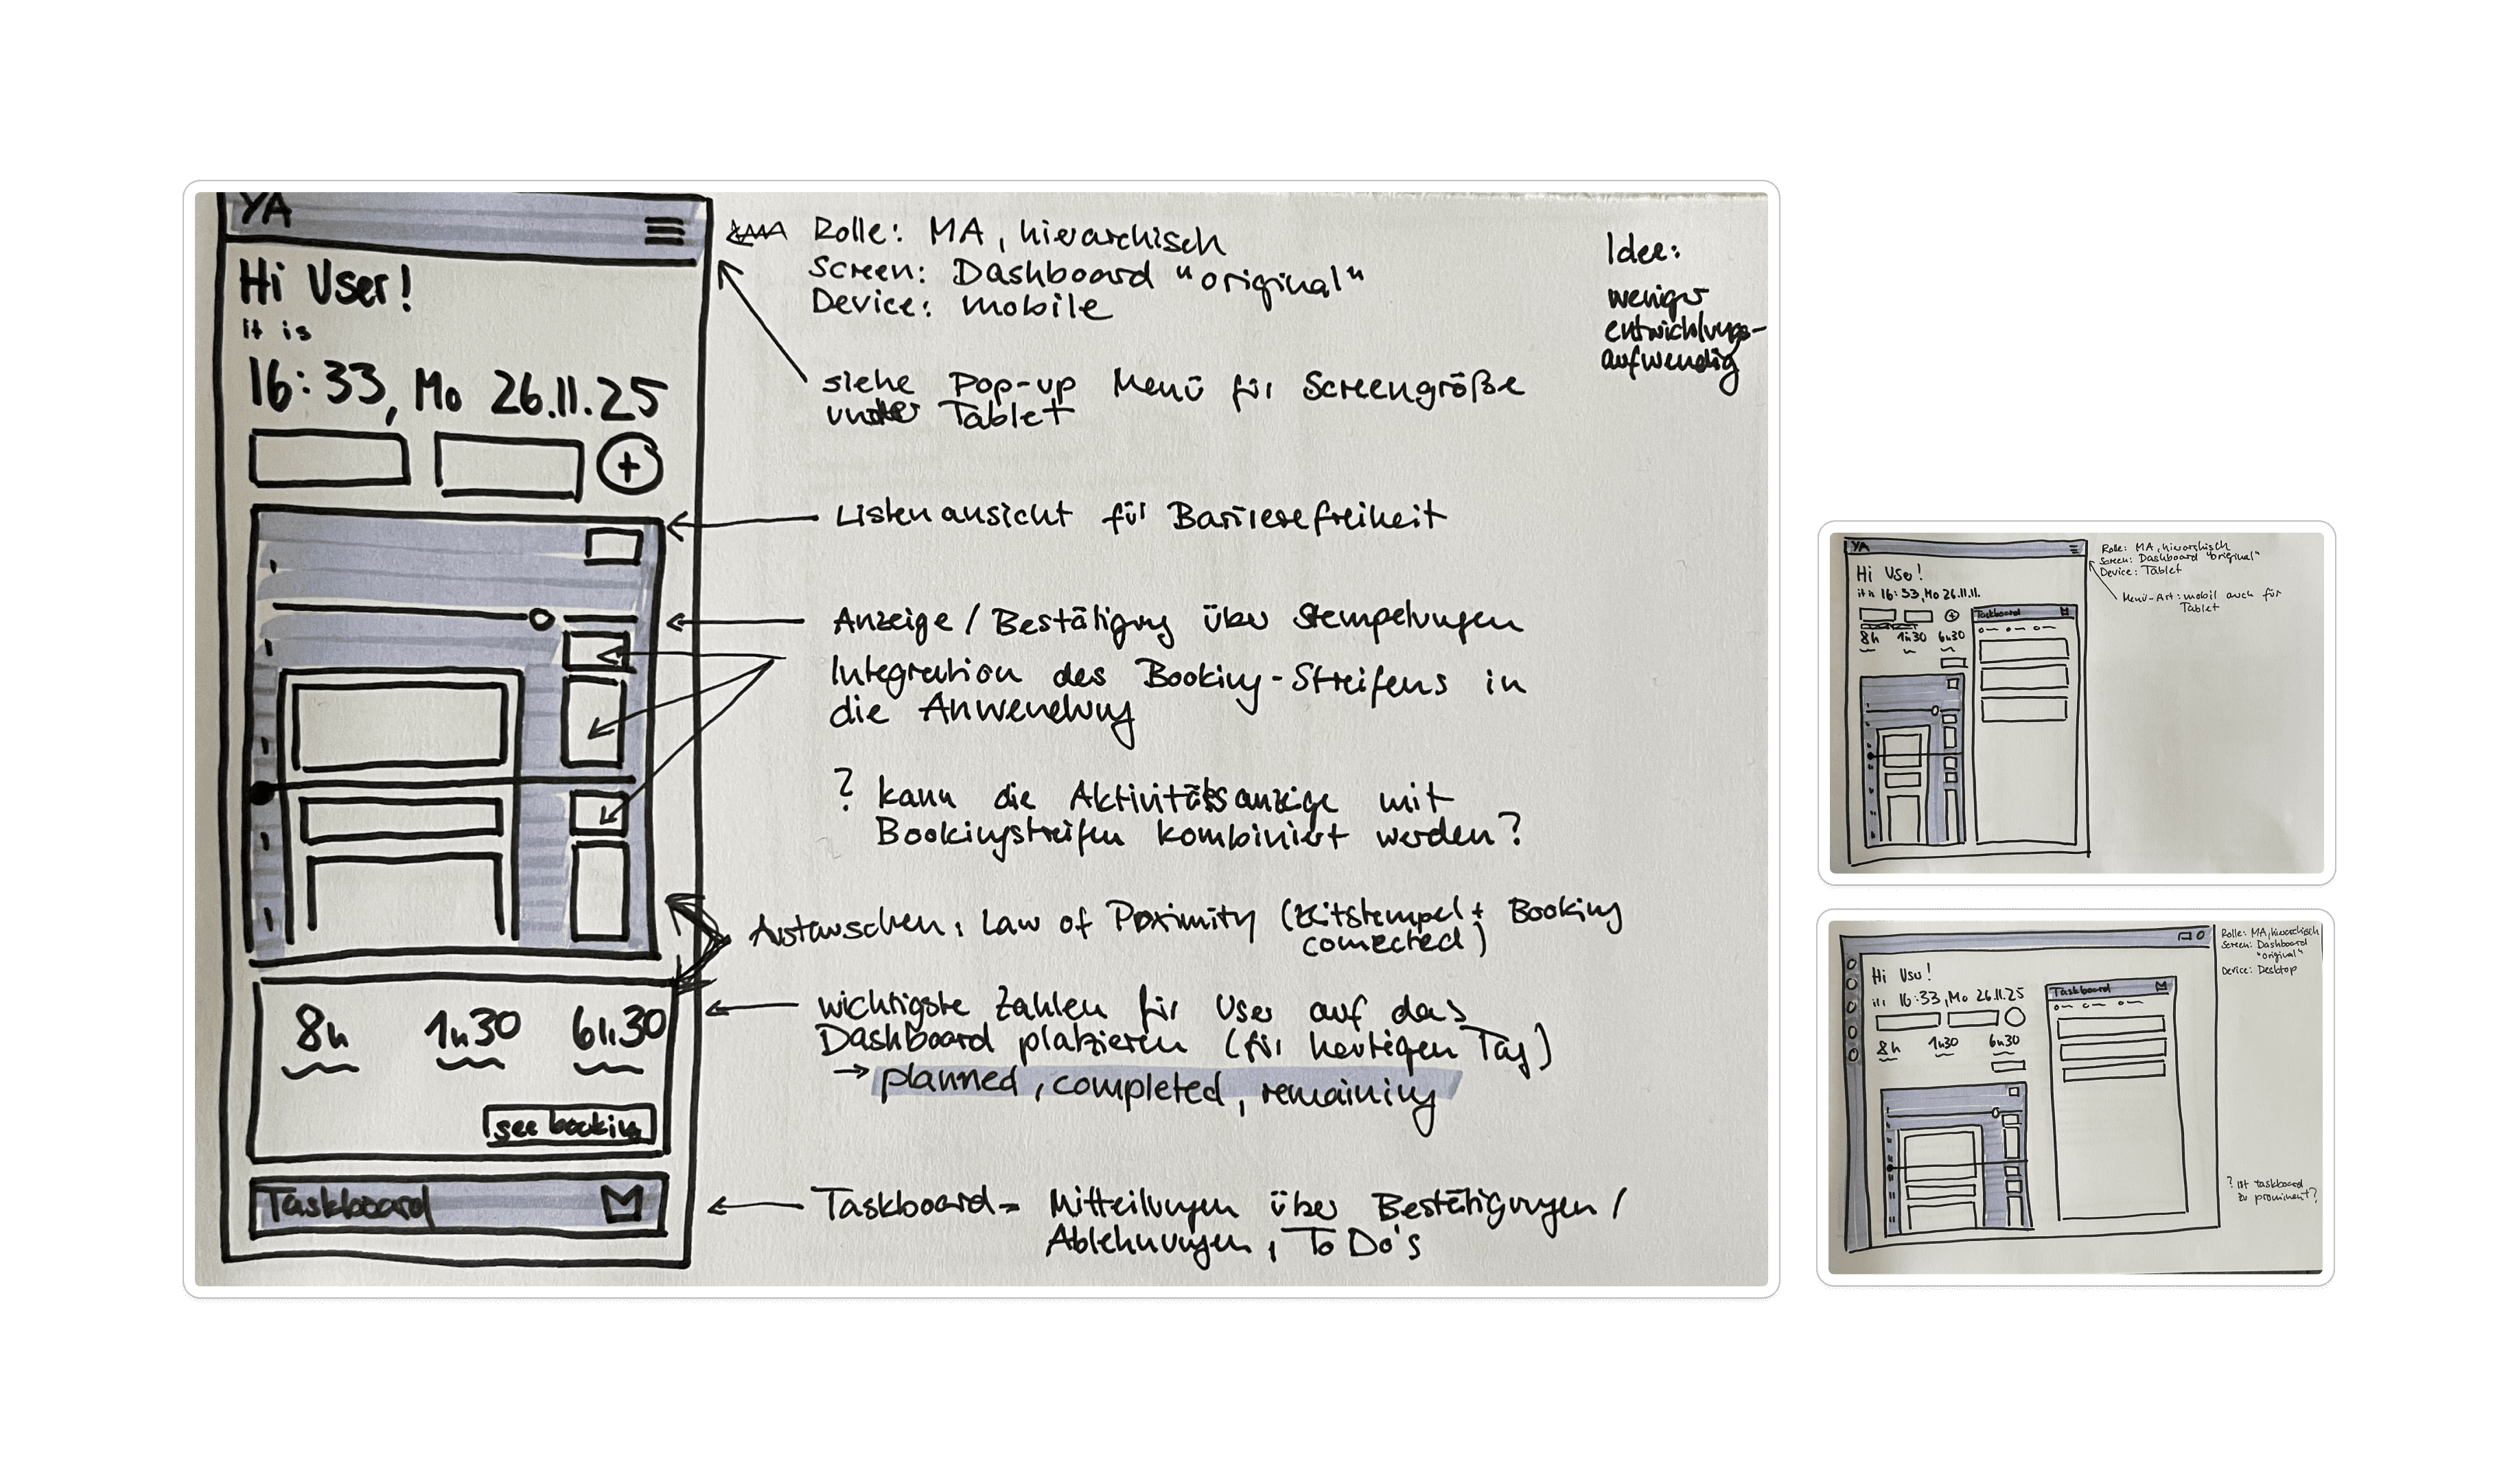 YA
Hi User!
it is
16:33, Mo 26.11.25
8h 1h30 6h30
see bookin
Taskboard
Rolle: MA, hierarchisch
Screen: Dashboard "original"
Device: mobile
siehe Pop-up Menü für Screengröße
unter Tablet
Listenansicht für Barrierefreiheit
Anzeige / Bestätigung über Stempelungen
Integration des Booking-Streifens in
die Anwendung
? kann die Aktivitätsanzeige mit
Bookingstreifen kombiniert werden?
Austauschen, Law of Proximity (Zeitstempel + Booking
connected)
wichtigste Zahlen für User auf das
Dashboard platzieren (für heutigen Tag)
→ planned, completed, remaining
Taskboard = Mitteilungen über Bestätigungen /
Ablehnungen, To Do's
Idee:
weniger
entwicklungs-
aufwendig
YA
Hi User!
it is 16:33, Mo 26.11.
8h 1h30 6h30
Taskboard
Rolle: MA, hierarchisch
Screen: Dashboard "original"
Device: Tablet
Menü-Art: mobil auch für
Tablet
Hi User!
16:33, Mo 26.11.25
8h 1h30 6h30
Taskboard
Rolle: MA, hierarchisch
Screen: Dashboard
"original"
Device: Desktop
? ist taskboard
zu prominent?